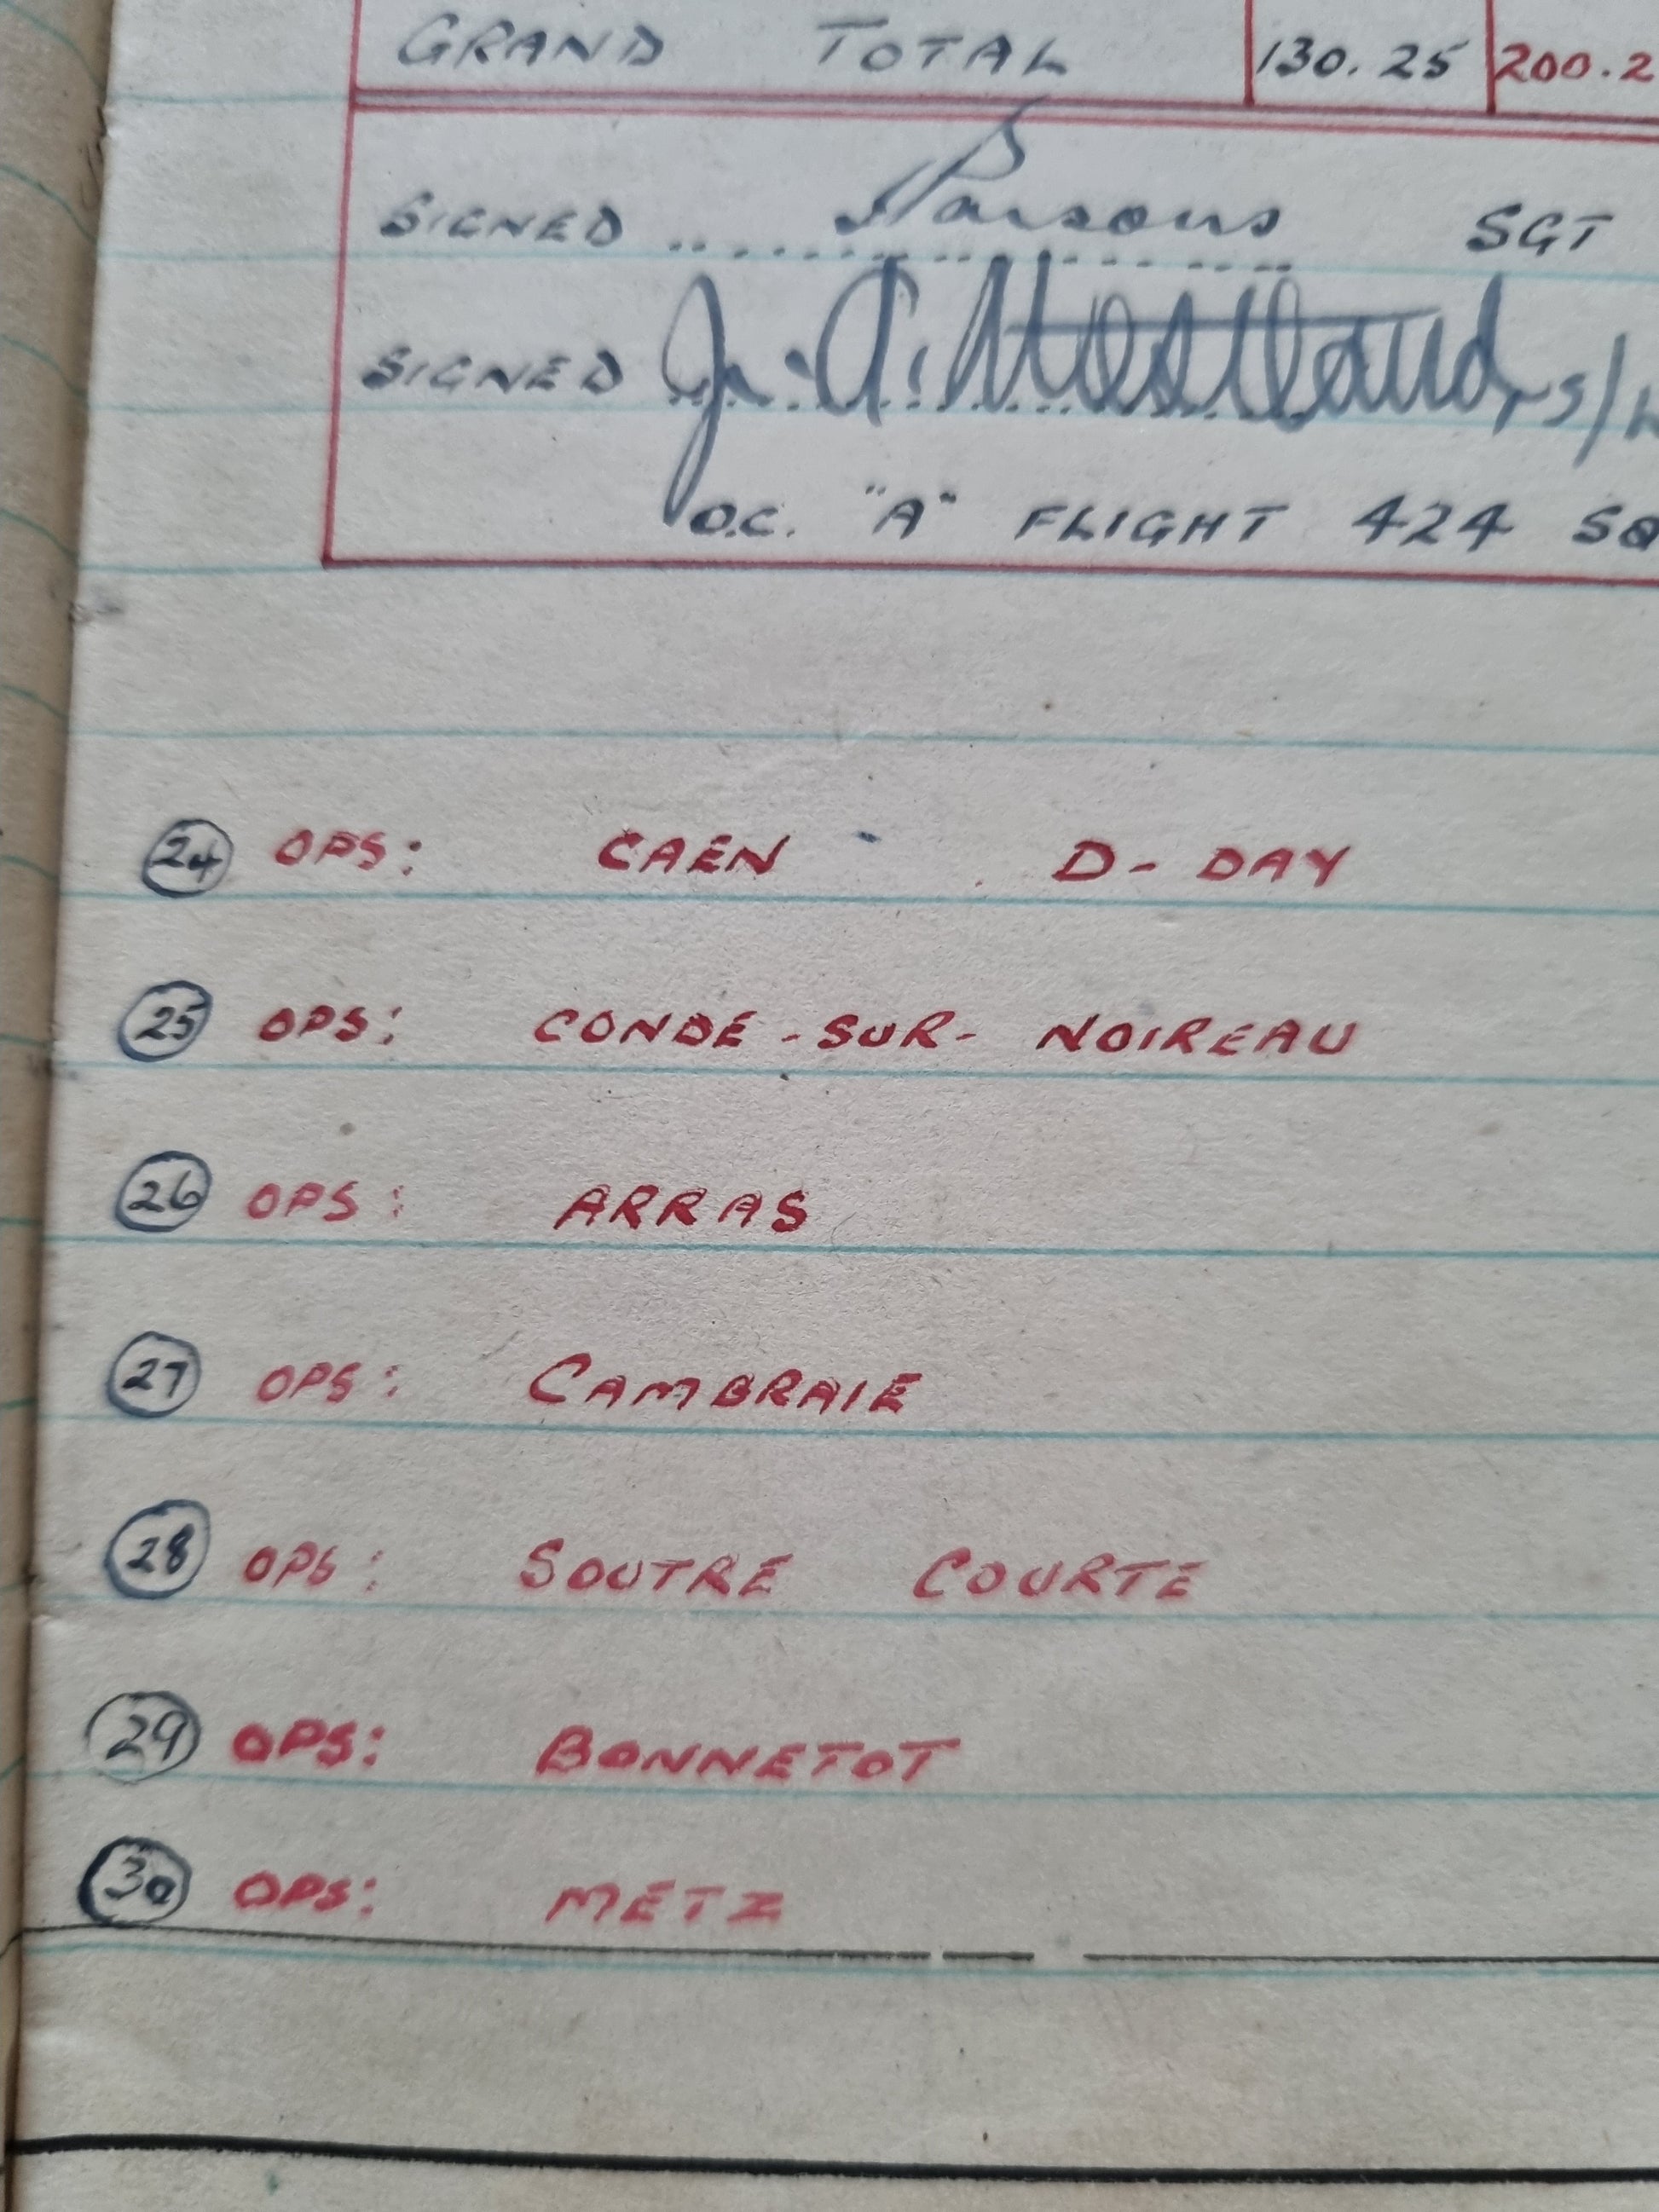 GRAND TOTAL 130.25 200.2
SIGNED Parsons SGT
SIGNED J. A. Westland S/L
O.C. "A" FLIGHT 424 SQ
24 OPS: CAEN D-DAY
25 OPS: CONDE-SUR-NOIREAU
26 OPS: ARRAS
27 OPS: CAMBRAIE
28 OPS: SOUTRE COURTE
29 OPS: BONNETOT
30 OPS: METZ